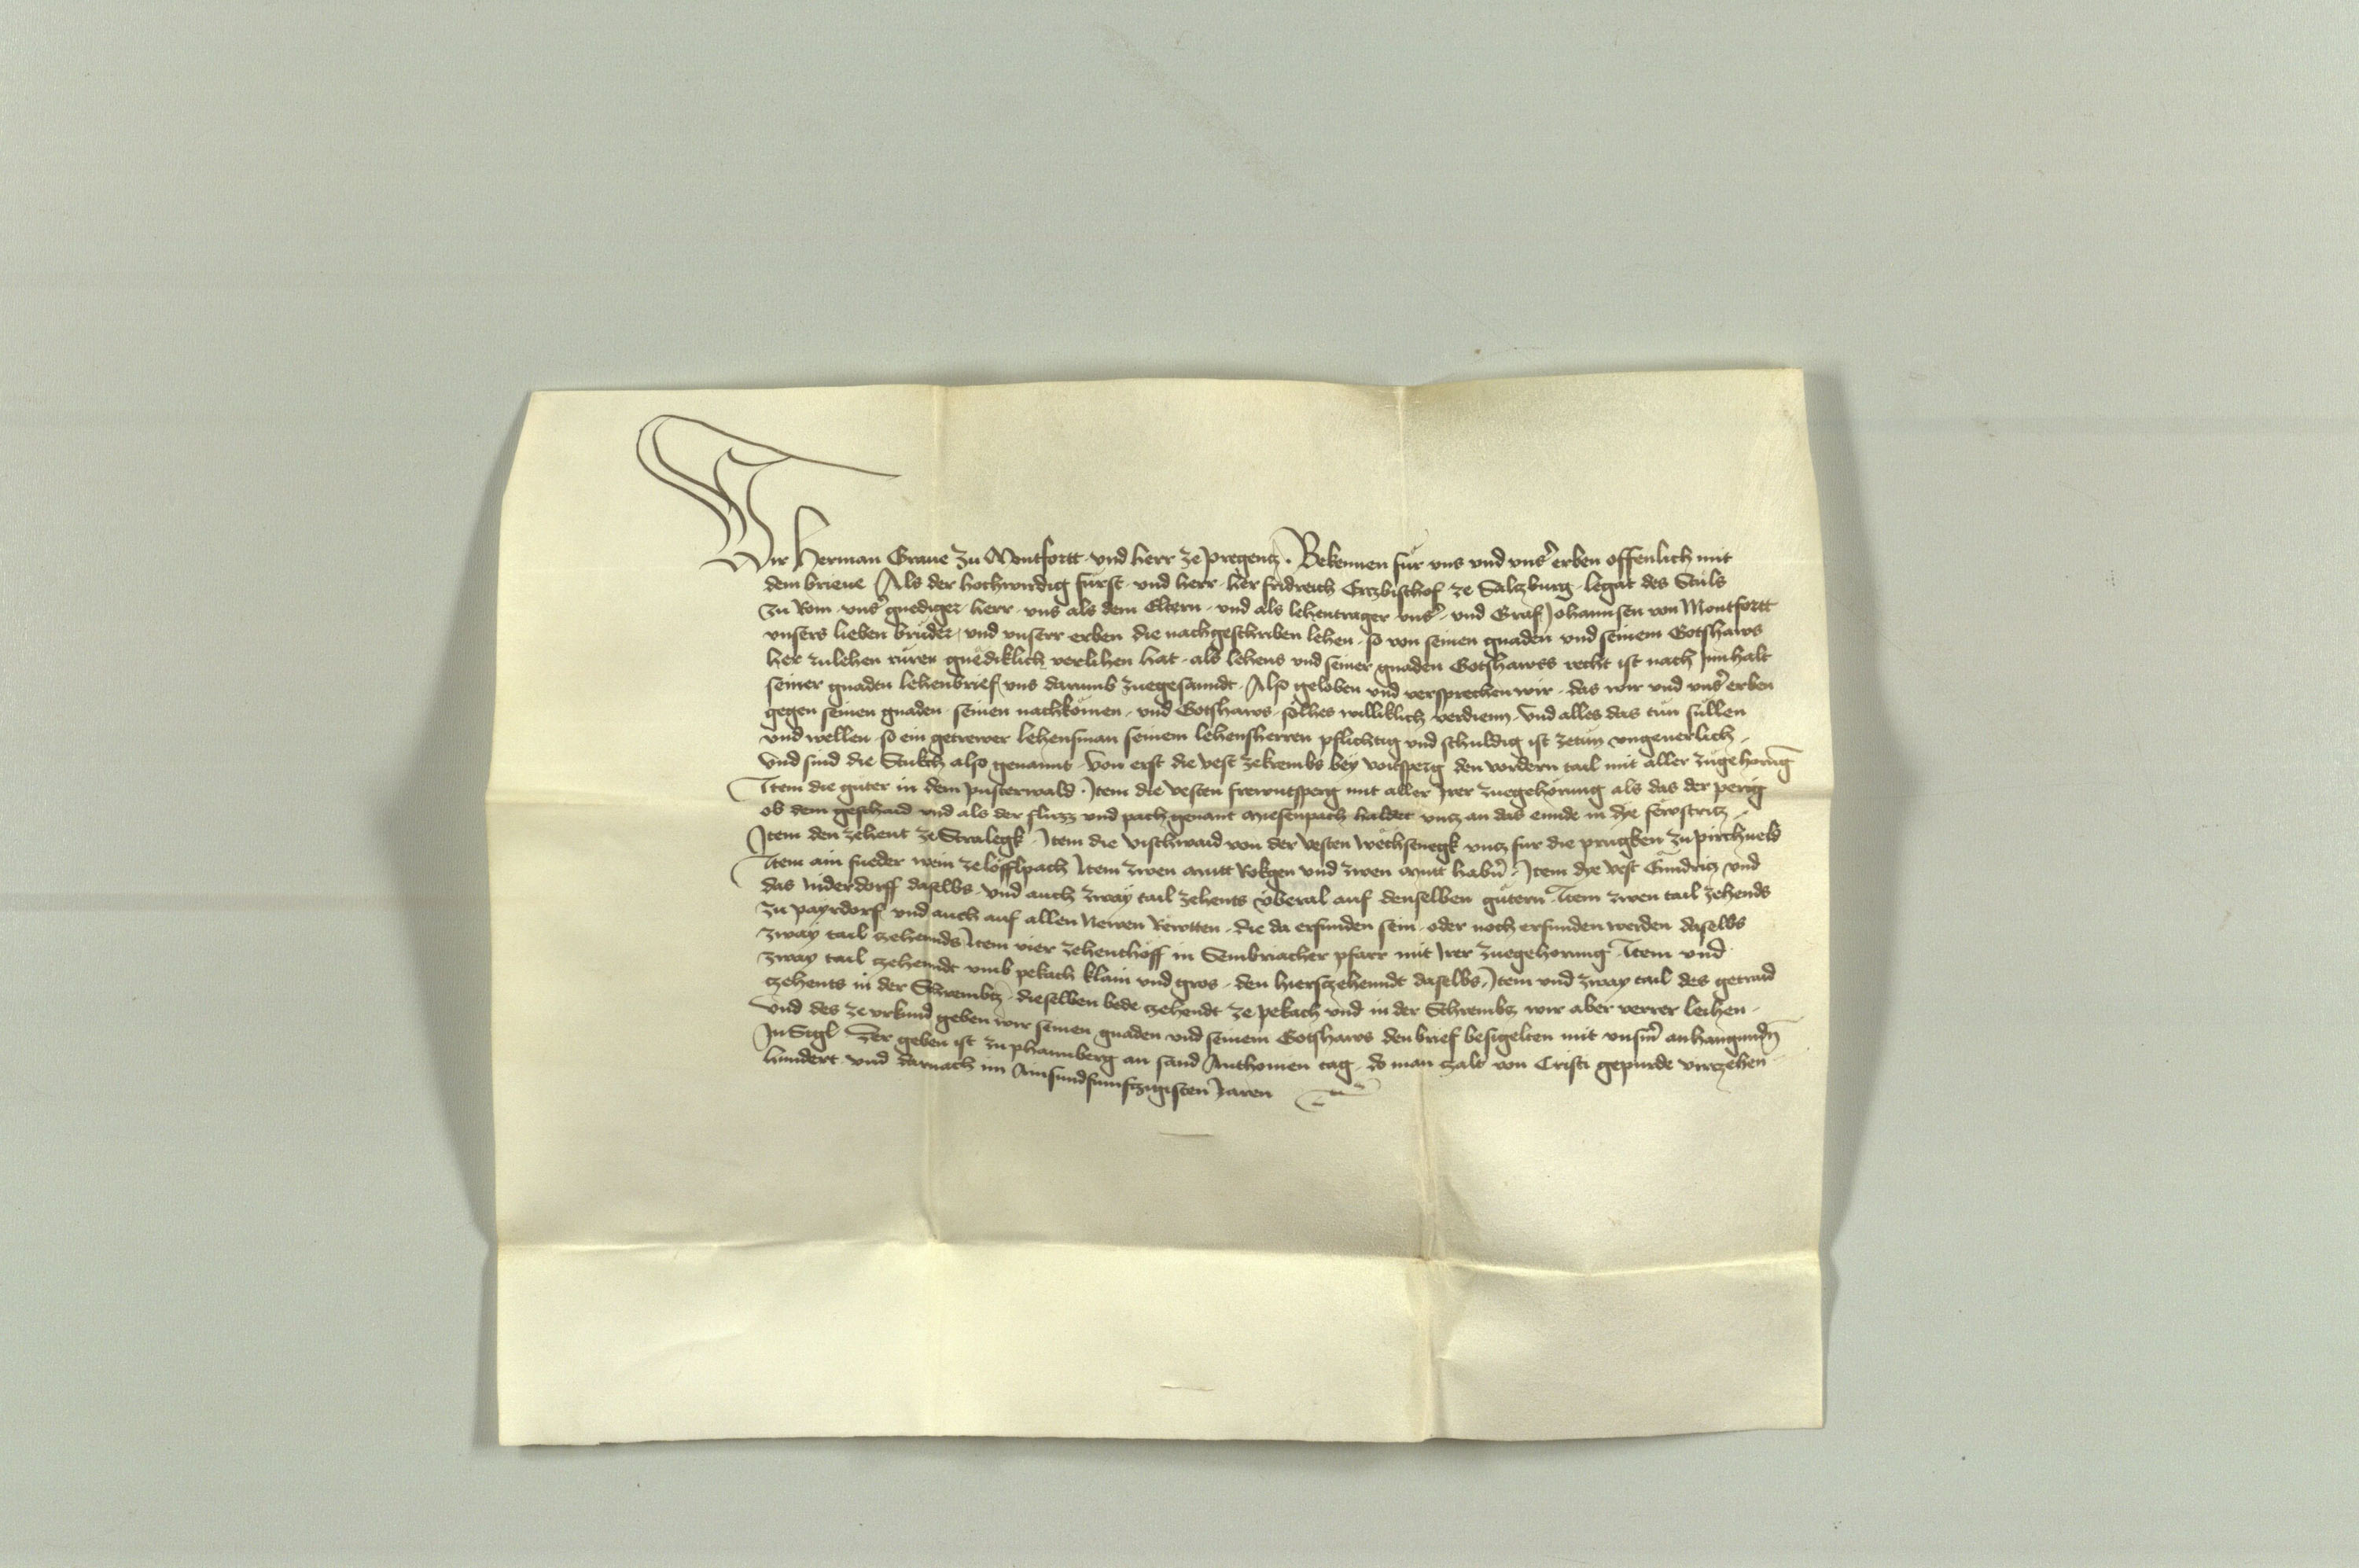 Wir Herman Graue zu Montfortt und herr ze pregencz. Bekennen für uns und unsˀ erben offenlich mit
dem brieue Als der hochwirdig fürst und herr her fridreich Erczbischof ze Salczburg legat des Stuls
zu Rom unsˀ gnediger herr uns als dem Eltern und als lehentrager unsˀ und Graf Johannsen von Montfortt
unsers lieben brüder und unserr erben die nachgeschriben lehen so von seinen gnaden und seinem Gotshaws
her zulehen rüren gnediklich verlihen hat als lehens und seiner gnaden Gotshawss recht ist nach Innhalt
seiner gnaden lehenbrief uns darumb zuegesanndt Also geloben und versprechen wir das wir und unsˀ erben
gegen seinen gnaden seinen nachkömen und Gotshaws sölhes williklich verdienn und alles das tün süllen
und wellen so ein getrewer lehensman seinem lehensherren pflichtig und schuldig ist zetün ungeuerlich
Und sind die Stukch also genannt Von erst die vest zekrembs bey voitsperg den vordern tail mit aller zugehorūg
Item die güter in dem pusterwald Item die vesten frewntsperg mit aller Irer zuegehörung als das der perig
ob dem geschaid und als der flüzz und pach genant miesenpach haldet uncz an das ennde in dye fewstricz
Item den zehent ze Stralegk Item die vischwaid von der vesten wechsenegk uncz für die prugken zu pirchueld
Item ain fueder wein ze löfflpach Item zwen mutt Rokgen und zwen mutt habn̄ Item dye vest Gundricz und
das Niderdorff daselbs und auch zway tail zehents überal auf denselben gütern Item zwen tail zehends
zu payrdorf und auch auf allen Newen Rewtten die da erfunden sein oder noch erfunden werden daselbs
zway tail czehennds Item vier zehenthöff in Sembriacher pfarr mit Irer zuegehorung Item und
zway tail czehenndt umb pekach klain und gros den hierszehenndt daselbs Item und zway tail des getraid
czehents in der Schrembcz dieselben bede czehendt ze pekach und in der Schrembs wir aber verrer leihen
Und des ze urkund geben wir seinen gnaden und seinem Gotshaws den brief besigelten mit unsm̄ anhangundn̄
In Sigl Der geben ist zu phannberg an sand Anthonien tag do man czalt von Cristi gepurde vierczehen
hundert und darnach im Ainsundfumfczigisten Jaren